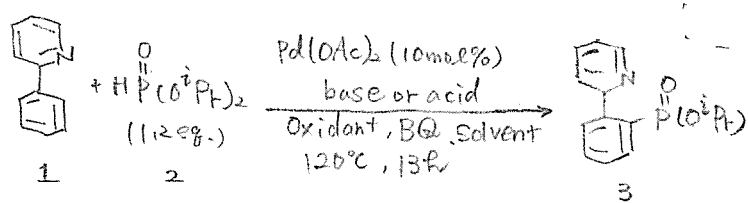 N
1
+
O
HP(OⁱPr)₂
(1,2 eq.)
2
Pd(OAc)₂ (10mol%)
base or acid
Oxidant, BQ, Solvent
120°C, 13h
N
O
P(OⁱPr)
3